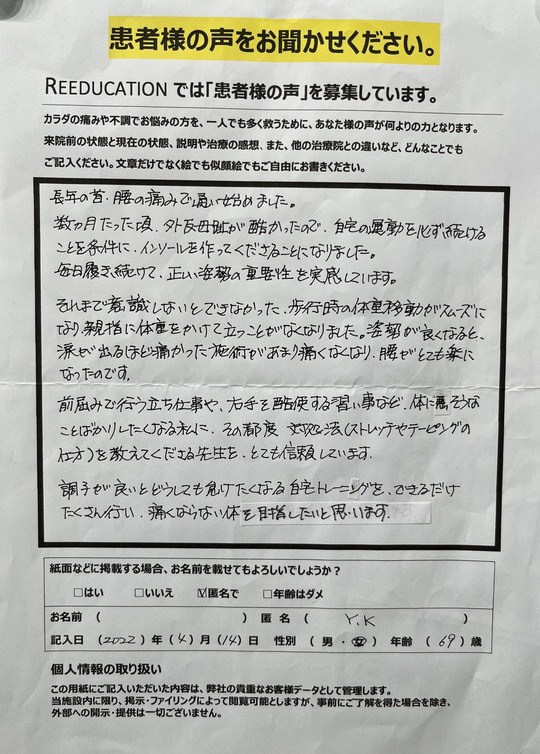 患者様の声をお聞かせください。
REEDUCATION では「患者様の声」を募集しています。
カラダの痛みや不調でお悩みの方を、一人でも多く救うために、あなた様の声が何よりの力となります。
来院前の状態と現在の状態、説明や治療の感想、また、他の治療院との違いなど、どんなことでも
ご記入ください。文章だけでなく絵でも似顔絵でもご自由にお書きください。
長年の首・腰の痛みで通い始めました。
数ヶ月たった頃、外反母趾が酷かったので、自宅の運動を必ず続ける
ことを条件に、インソールを作ってくださることになりました。
毎日履き続けて、正しい姿勢の重要性を実感しています。
それまで意識しないとできなかった、歩行時の体重移動がスムーズに
なり親指に体重をかけて立つことがなくなりました。姿勢が良くなると、
涙が出るほど痛かった施術があまり痛くなくなり、腰がとても楽に
なったのです。
前屈みで行う立ち仕事や、右手を酷使する習い事など、体に悪そうな
ことばかりしたくなる私に、その都度 対処法(ストレッチやテーピングの
仕方)を教えてくださる先生を、とても信頼しています。
調子が良いとどうしても怠けたくなる自宅トレーニングを、できるだけ
たくさん行い、痛くならない体を目指したいと思います。
紙面などに掲載する場合、お名前を載せてもよろしいでしょうか?
□はい □いいえ ☑匿名で □年齢はダメ
お名前 ( ) 匿名 ( Y.K )
記入日 (2022) 年 (4) 月 (14) 日 性別 ( 男 ・ 女 ) 年齢 ( 69 ) 歳
個人情報の取り扱い
この用紙にご記入いただいた内容は、弊社の貴重なお客様データとして管理します。
当施設内に限り、掲示・ファイリングによって閲覧可能としますが、事前にご了解を得た場合を除き、
外部への開示・提供は一切ございません。